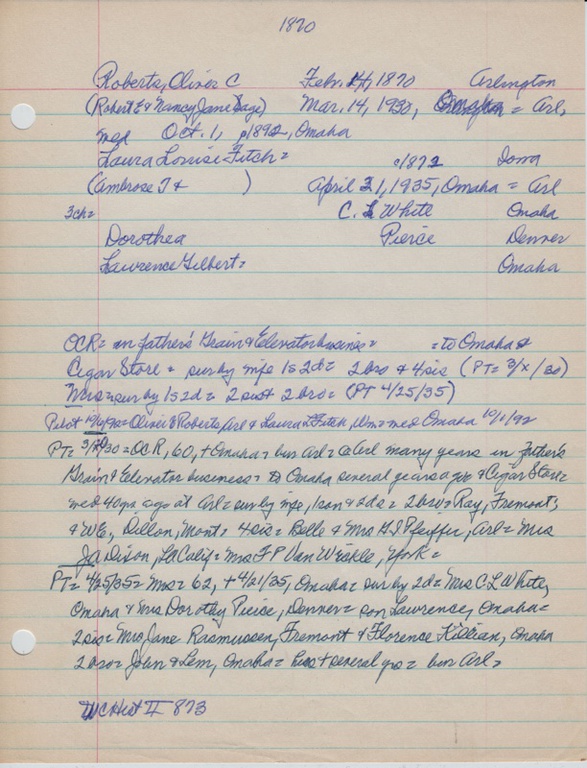 1870
Roberts, Oliver C Feb. 24, 1870 Arlington
(Robert E & Nancy Jane Gage) Mar. 14, 1930, Omaha = Arl,
med Oct. 1, 1892, Omaha
Laura Louise Fitch = c1872 Iowa
(Ambrose T & ) April 21, 1935, Omaha = Arl
3ch = C. L White Omaha
Dorothea Pierce Denver
Lawrence Gilbert = Omaha
OCR = in father's Grain & Elevator business = = to Omaha &
Cigar Store = sur by wife 1s 2d = 2 bro & 4 sis (PT = 3/x/30)
Mrs = sur by 1s 2d = 2 sis & 2 bro = (PT 4/25/35)
Pilot 10/6/92 = Oliver C Roberts, Arl & Laura L Fitch, = med Omaha 10/1/92
PT = 3/30 = OCR, 60, + Omaha = bur Arl = Arl many years in father's
Grain & Elevator business = to Omaha several years ago & Cigar Store =
med 40 yrs ago at Arl = sur by wife, 1 son & 2ds = 2 bro = Ray, Fremont,
& W.E., Dillon, Mont = 4 sis = Belle & Mrs G I Pfeiffer, Arl = Mrs
J A Dixon, LA Calif = Mrs F P Van Wickle, York =
PT = 4/25/35 = Mrs = 62, + 4/21/35, Omaha = sur by 2d = Mrs C L White,
Omaha & Mrs Dorothy Pierce, Denver = son Lawrence, Omaha =
2 sis = Mrs Jane Rasmussen, Fremont & Florence Killian, Omaha
2 bro = John & Lem, Omaha = + several gro = bur Arl =
WC Hist II 873